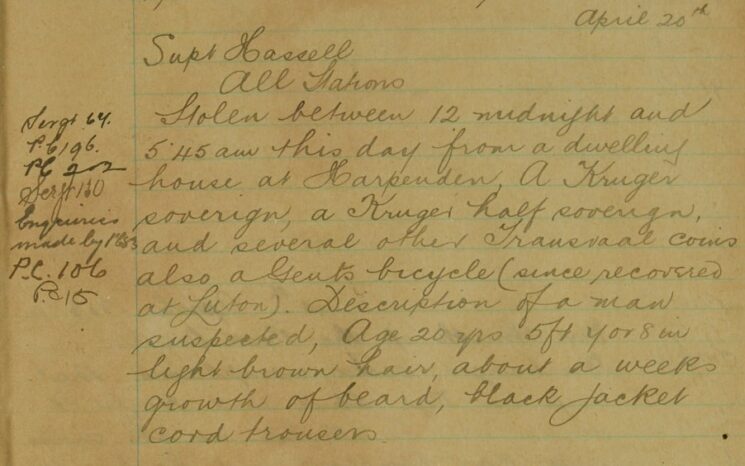 April 20th
Supt Hassell
All Stations
Stolen between 12 midnight and
5.45 am this day from a dwelling
house at Harpenden, A Kruger
soverign, a Kruger half soverign,
and several other Transvaal coins
also a Gents bicycle (since recovered
at Luton). Description of a man
suspected, Age 20 yrs 5ft 7 or 8 in
light brown hair, about a weeks
growth of beard, black jacket
cord trousers.
Sergt 64.
P.C 196.
PC 202
Sergt 130
Enquiries
made by
P.C. 106
P.C 15